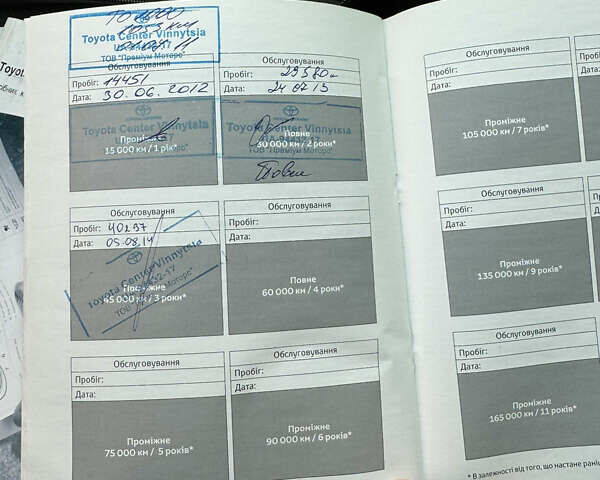 ТО 1000
1053 км
Toyota Center Vinnytsia
ТОВ "Преміум Моторс"
Обслуговування
Пробіг: 14451
Дата: 30.06.2012
Toyota Center Vinnytsia
Проміжне
15 000 км / 1 рік*
Обслуговування
Пробіг: 29580
Дата: 24 07 13
Toyota Center Vinnytsia
Повне
30 000 км / 2 роки*
ТОВ "Преміум Моторс"
Повне
Обслуговування
Пробіг: 40297
Дата: 05.08.14
Toyota Center Vinnytsia
Проміжне
45 000 км / 3 роки*
ТОВ "Преміум Моторс"
Обслуговування
Пробіг:
Дата:
Повне
60 000 км / 4 роки*
Обслуговування
Пробіг:
Дата:
Проміжне
75 000 км / 5 років*
Обслуговування
Пробіг:
Дата:
Проміжне
90 000 км / 6 років*
Обслуговування
Пробіг:
Дата:
Проміжне
105 000 км / 7 років*
Обслуговування
Пробіг:
Дата:
Проміжне
135 000 км / 9 років*
Обслуговування
Пробіг:
Дата:
Проміжне
165 000 км / 11 років*
* В залежності від того, що настане
Toyo